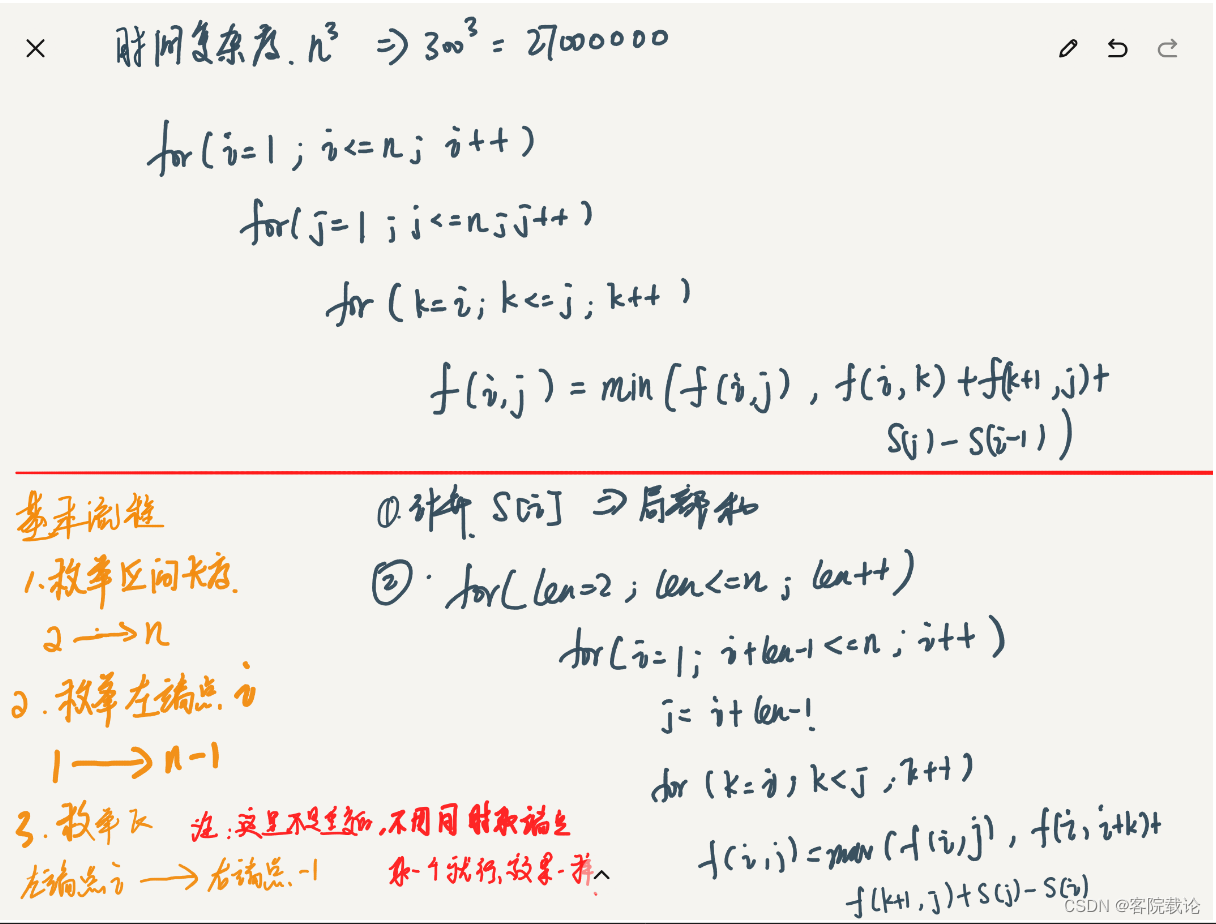 时间复杂度. n³ => 300³ = 27000000
for(i=1 ; i<=n; i++)
for(j=1 ; j<=n; j++)
for (k=i; k<=j; k++)
f(i,j) = min(f(i,j), f(i,k)+f(k+1,j)+
S(j)-S(i-1))
基本流程
1.枚举区间长度.
2 → n
2.枚举左端点 i
1 → n-1
3.枚举k
左端点i → 右端点-1
①.计算 S[i] => 局部和
②. for(len=2; len<=n; len++)
for(i=1; i+len-1<=n; i++)
j= i+len-1
for (k=i; k<j; k++)
f(i,j)=max(f(i,j), f(i,i+k)+
f(k+1,j)+S(j)-S(i)
注:这里不是重复的,不用同时取端点
取一个就行,效果一样.
CSDN @客院载论